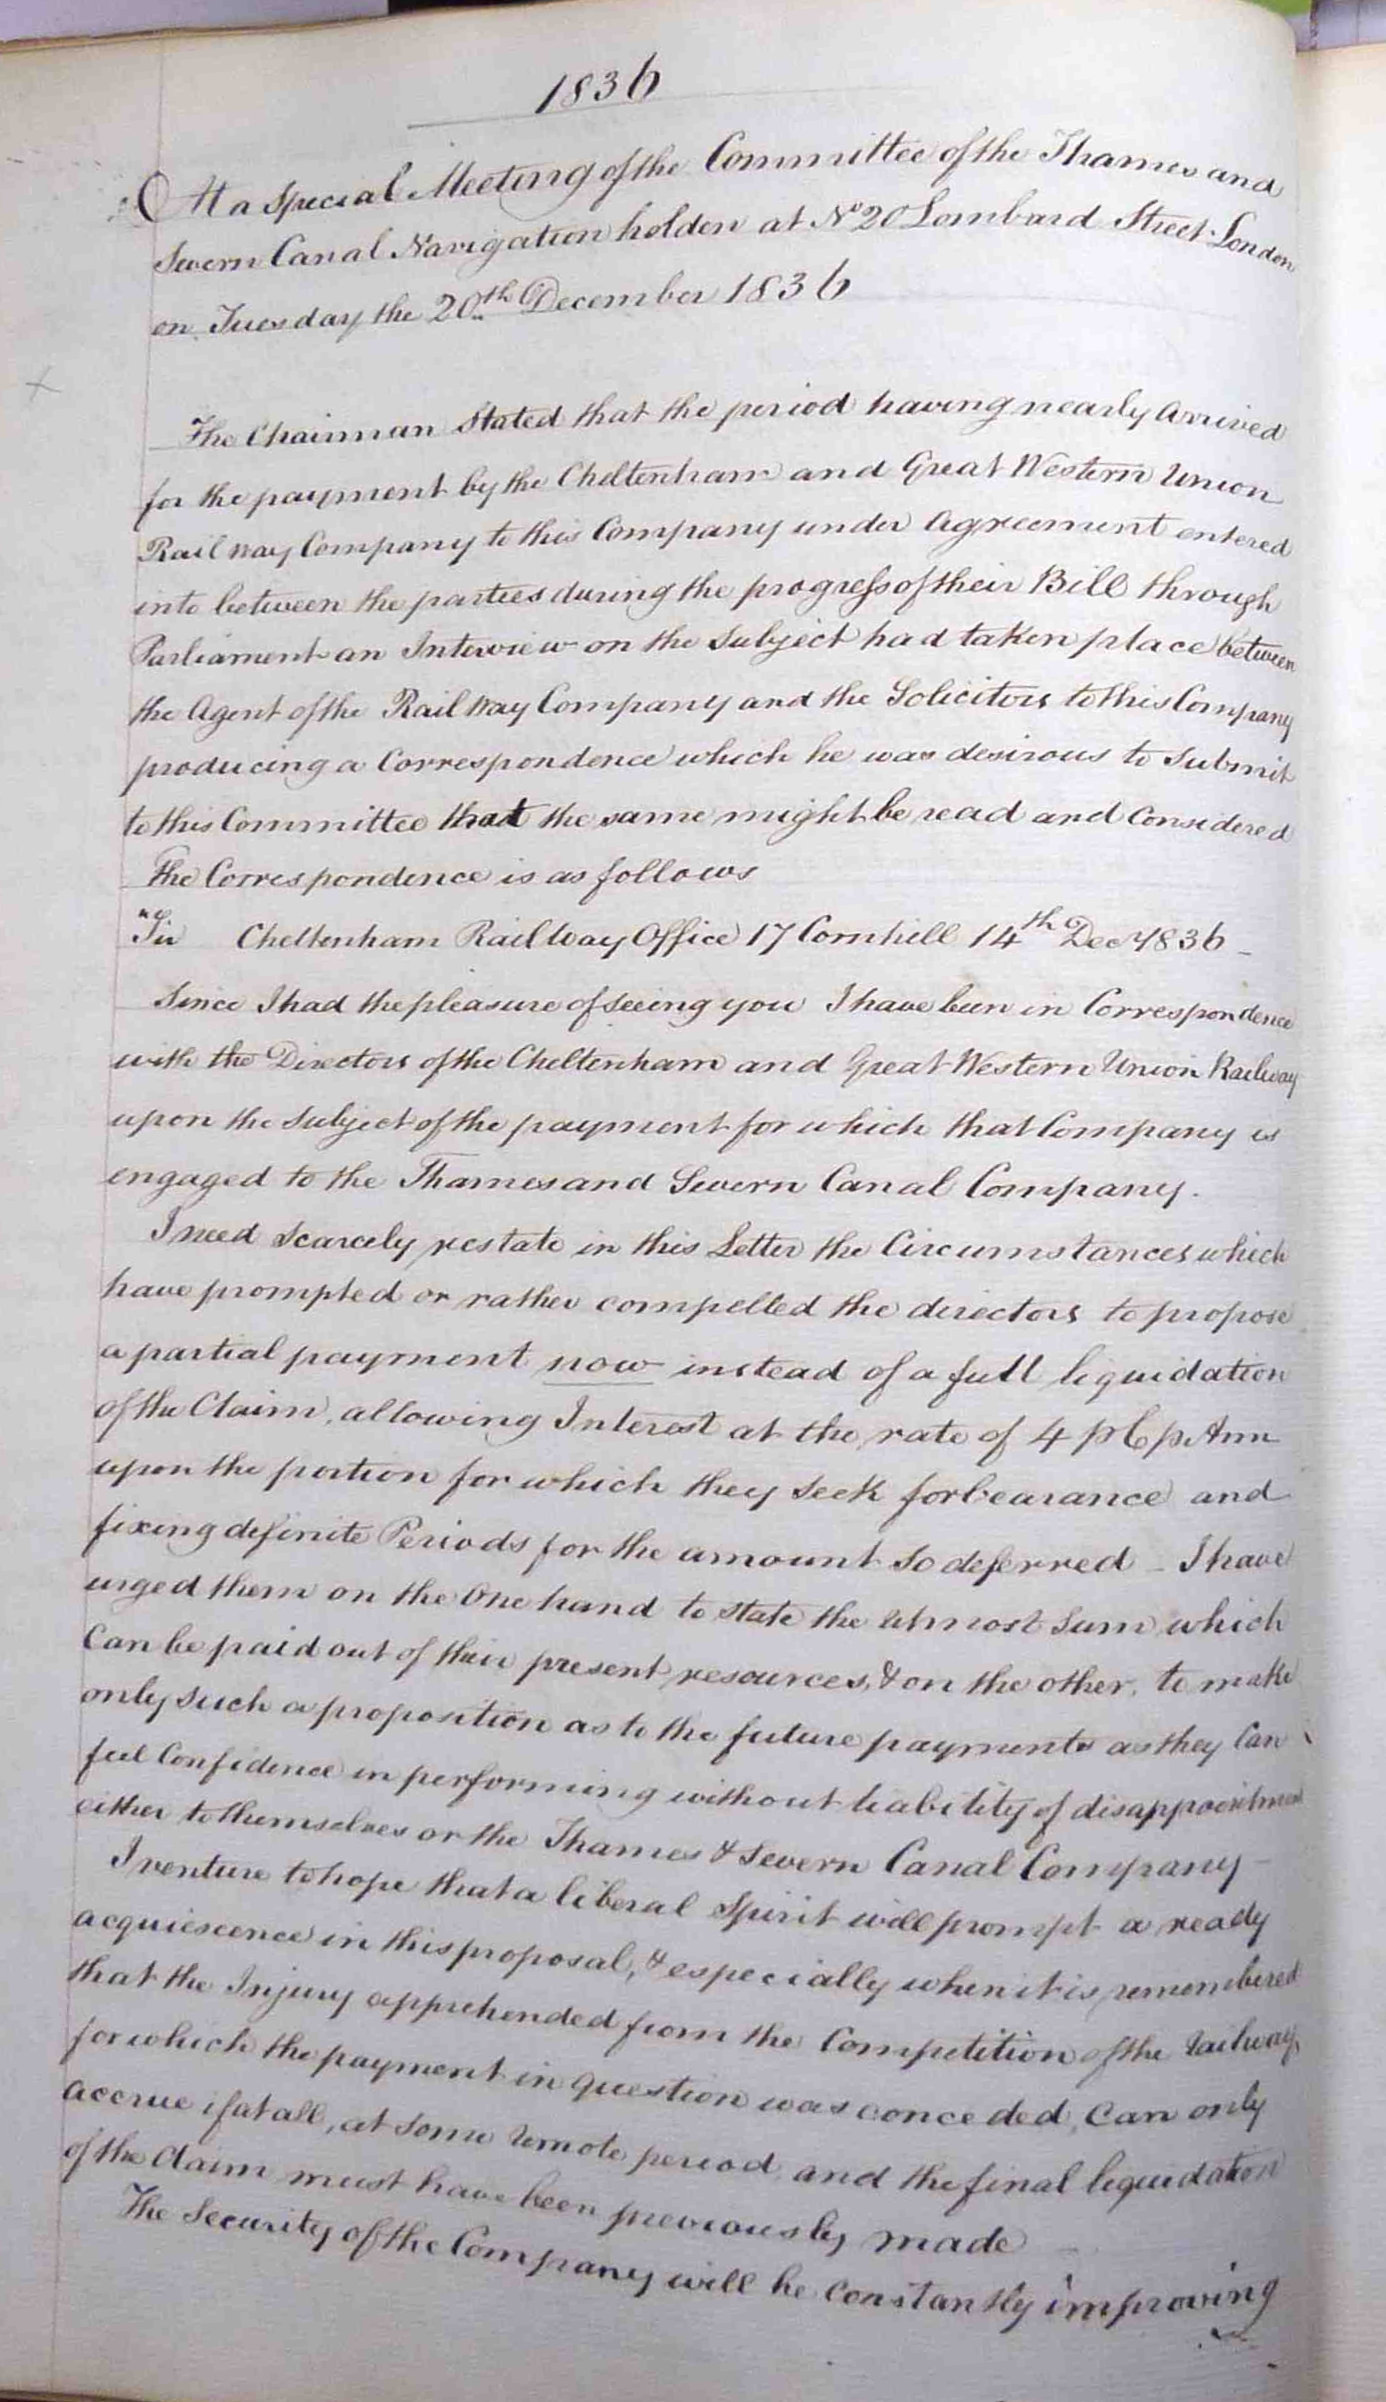 1836
At a Special Meeting of the Committee of the Thames and
Severn Canal Navigation holden at No 20 Lombard Street London
on Tuesday the 20th December 1836
The Chairman Stated that the period having nearly Arrived
for the payment by the Cheltenham and Great Western Union
Railway Company to this Company under Agreement entered
into between the parties during the progress of their Bill through
Parliament an Interview on the Subject had taken place between
the Agent of the Railway Company and the Solicitors to this Company
producing a Correspondence which he was desirous to Submit
to this Committee that the same might be read and Considered
The Correspondence is as follows
"Sir Cheltenham Railway Office 17 Cornhill 14th Decr 1836 -
Since I had the pleasure of seeing you I have been in Correspondence
with the Directors of the Cheltenham and Great Western Union Railway
upon the Subject of the payment for which that Company is
engaged to the Thames and Severn Canal Company.
I need Scarcely restate in this Letter the Circumstances which
have prompted or rather compelled the directors to propose
a partial payment now instead of a full liquidation
of the Claim, allowing Interest at the rate of 4 p C p Ann
upon the portion for which they Seek forbearance and
fixing definite Periods for the amount So deferred - I have
urged them on the One hand to State the Utmost Sum which
Can be paid out of their present resources, & on the other, to make
only Such a proposition as to the future payments as they Can
feel Confidence in performing without liability of disappointment
either to themselves or the Thames & Severn Canal Company -
I venture to hope that a liberal Spirit will prompt a ready
acquiescence in this proposal, & especially when it is remembered
that the Injury apprehended from the Competition of the Railway,
for which the payment in question was conceded, Can only
accrue if at all, at Some remote period and the final liquidation
of the Claim must have been previously made -
The Security of the Company will be Constantly improving